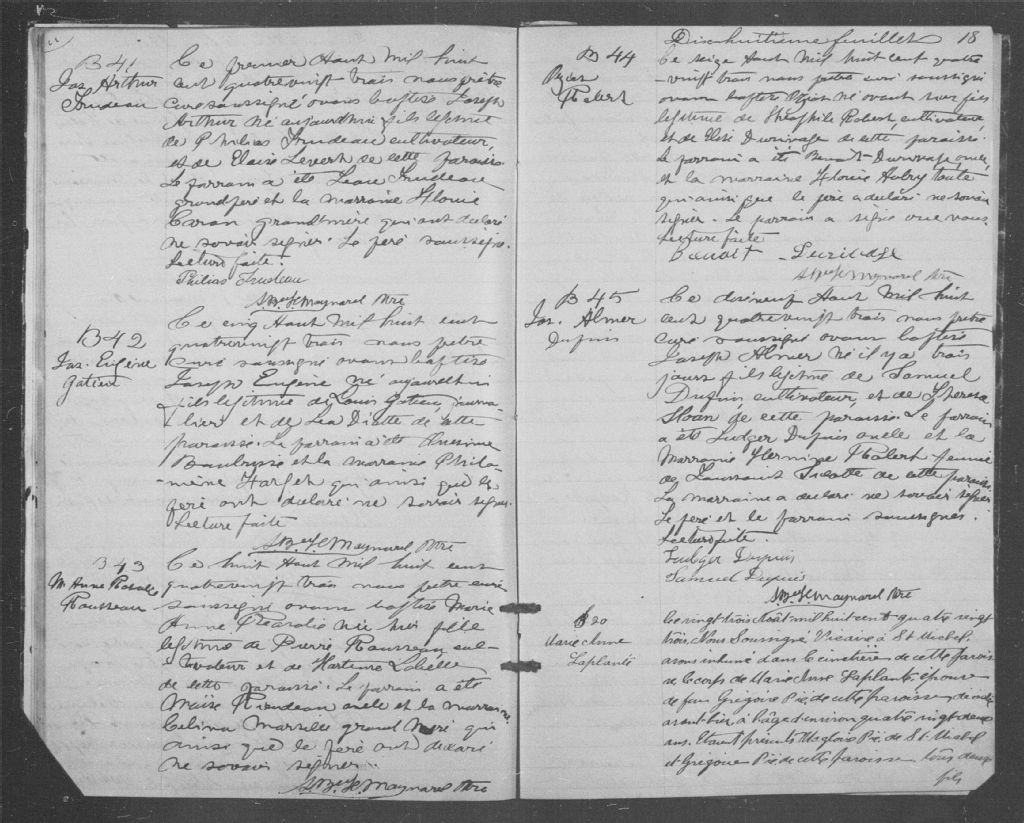 B 41
Jos. Arthur
Trudeau
Ce premier Haout Mil huit
cent quatrevingt trais nous prêtre
curé soussigné avons baptisé Joseph
Arthur né aujourdhui fils légitime
de Philias Trudeau cultivateur,
et de Elaire Levert de cette paraisse.
Le parrain a été Lean Trudeau
grandperé et la marraine Hlouie
Caran grandmère qui ont declaré
ne savoir signer. Le peré soussigné.
Lecture faite.
Philias Trudeau
Maynard Ptre
B 42
Jos. Eugène
Gatien
Ce cinq Haout Mil huit cent
quatrevingt trais nous petre
curé soussigné avons baptisé
Joseph Eugène né aujourdhui
fils legitime de Louis Gatien journa-
lier et de Lea Diette de cette
paraisse. Le parrain a été Anesime
et la marraine Philo-
mène Harper qui ainsi que le
peré ont declaré ne savoir signer.
Lecture faite
Maynard Ptre
B 43
M. Anne Rosalie
Rousseau
Ce huit Haout Mil huit cent
quatrevingt trais nous petre curé
soussigné avons baptisé Marie
Anne née hier fille
legitime de Pierre Rousseau cul-
tivateur et de Labelle
de cette paraisse. Le parrain a été
Moïse Trudeau oncle et la marraine
Celina Marsille grand Meré qui
ainsi que le peré ont declaré
ne savoir signer.
Maynard Ptre
Dixhuitieme feuillet 18
B 44
Robert
Ce seize Haout Mil huit cent quatre
vingt trais nous petre curé soussigné
avons baptisé né avant hier fils
legitime de Théophile Robert, cultivateur
et de Elise Durivage de cette paraisse.
Le parrain a été Benoit Durivage, oncle
et la marraine Hlouie Aubry tante
qui ainsi que le peré a declaré ne savoir
signer. Le parrain a signé avec nous.
Lecture faite
Benoit Durivage
Maynard Ptre
B 45
Jos. Almer
Dupuis
Ce dixneuf Haout Mil huit
cent quatrevingt trais nous petre
curé soussigné avons baptisé
Joseph Almer né il y a trais
jours fils legitime de Samuel
Dupuis cultivateur, et de Theresa
Sloan de cette paraisse. Le parrain
a été Ludger Dupuis oncle et la
Marraine Hermine Robert femme
de Toussaint de cette paraisse.
La marraine a declaré ne savoir signer
Le peré et le parrain soussignés.
Lecture faite.
Ludger Dupuis
Samuel Dupuis
Maynard Ptre
S 20
Marie Anne
Laplante
Ce vingt trois Août mil huit cent quatre vingt
trois, Nous Soussigné Vicaire à St. Michel
avons inhumé dans le cimetière de cette paroisse
le corps de Marie Anne Laplante, épouse
de feu Grégoire Pié de cette paroisse, décédée
avant hier à l'âge d'environ quatre vingt deux
ans. Etaient présents Magloire Pié de St. Michel
et Grégoire Pié de cette paroisse, tous deux
fils